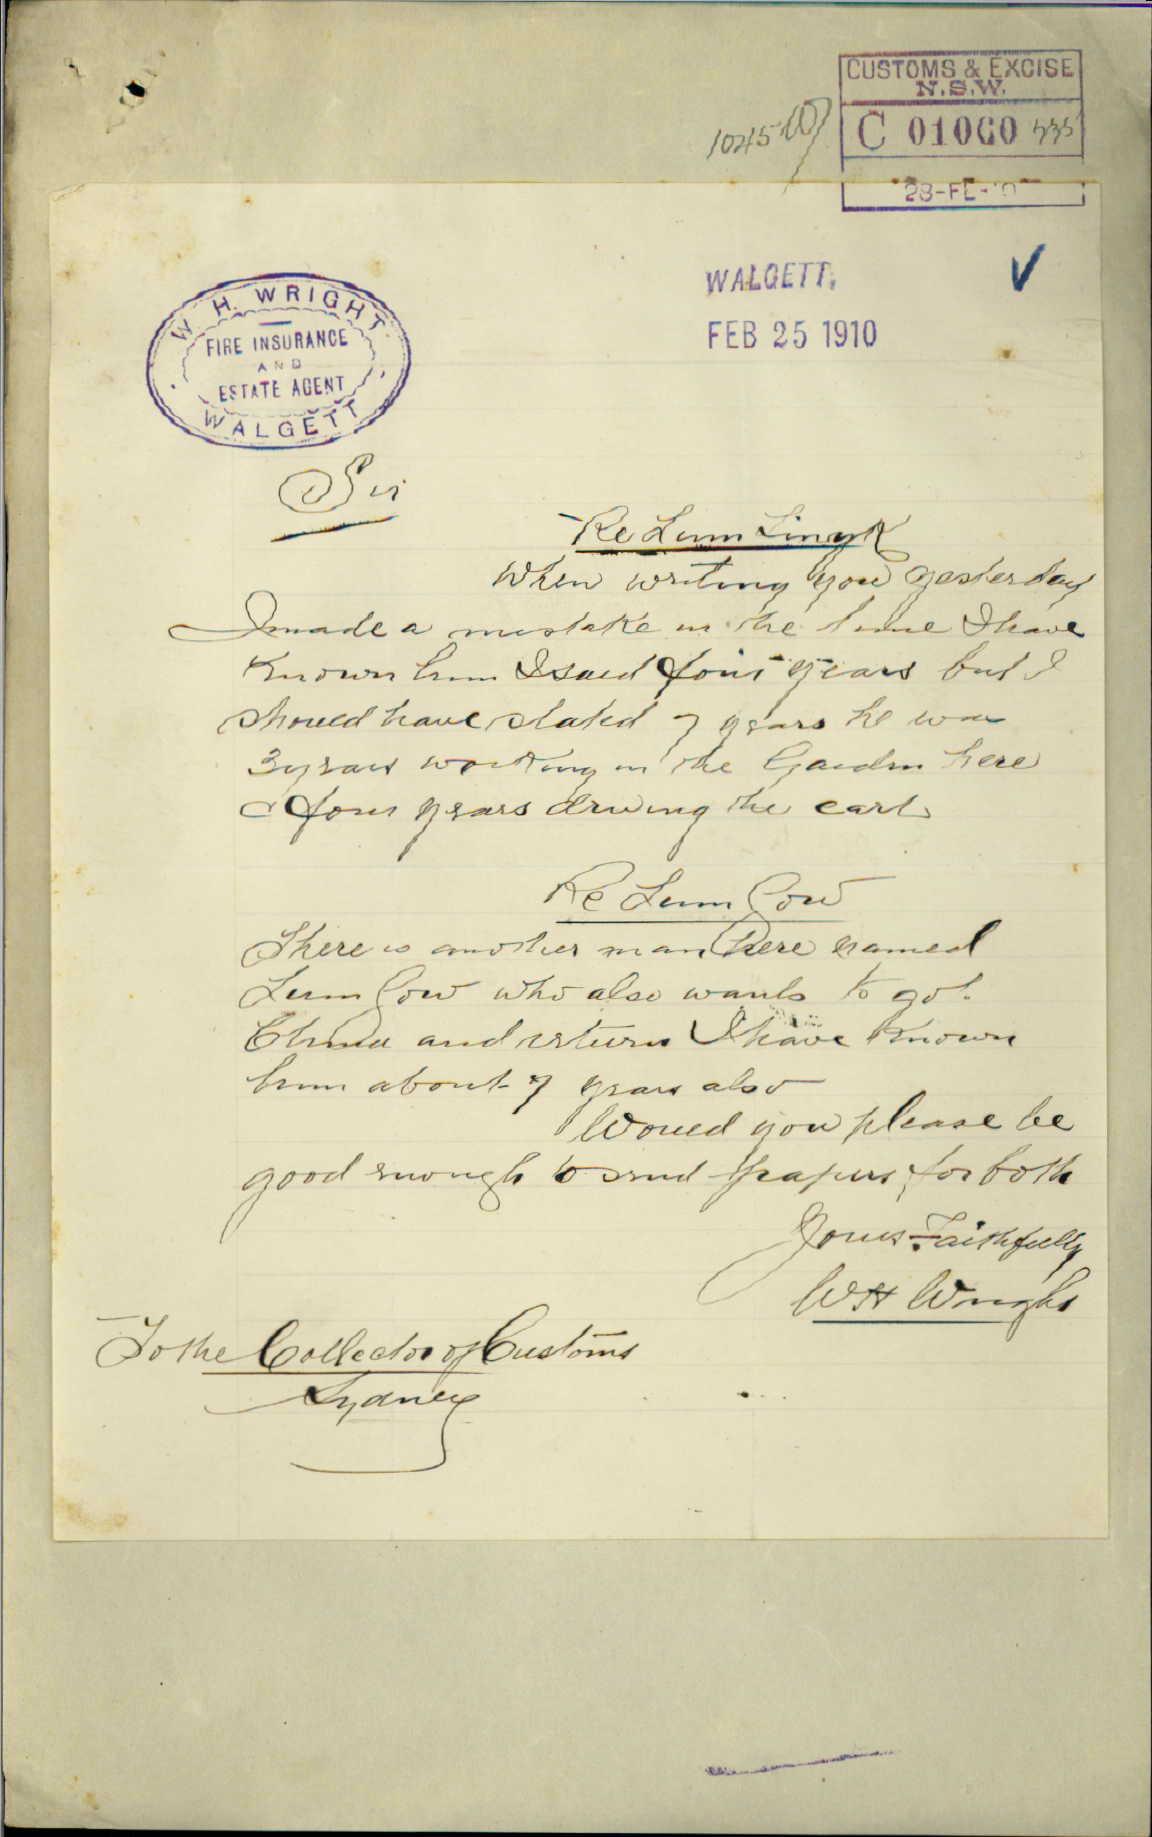 CUSTOMS & EXCISE
N.S.W.
C 01060
28-FE-
W. H. WRIGHT
FIRE INSURANCE
AND
ESTATE AGENT
WALGETT
WALGETT.
FEB 25 1910
Sir
Re Lum
When writing you yesterday
I made a mistake in the time I have
Known him I said four years but I
should have stated 7 years he was
3 years working in the Garden here
& four years driving the cart
Re Lum Gow
There is another man here named
Lum Gow who also wants to go to
China and return I have Known
him about 7 years also
Would you please be
good enough to send papers for both
Yours Faithfully
WH Wright
To the Collector of Customs
Sydney